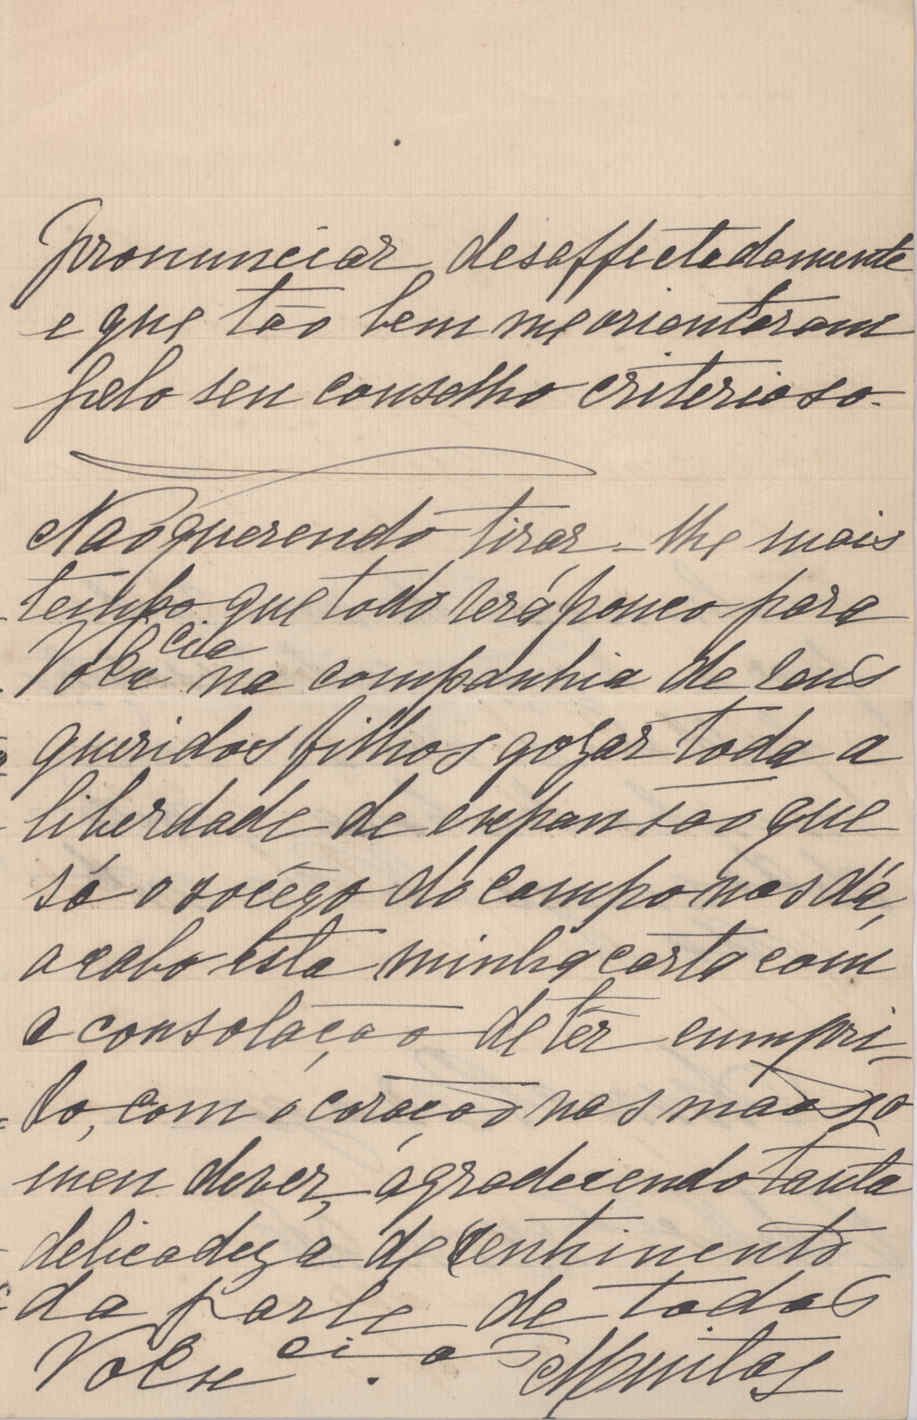 pronunciar desaffectadamente
e que tão bem me orientaram
pelo seu conselho criterioso.
Não querendo tirar-lhe mais
tempo que todo será pouco para
V Excia na companhia de seus
queridos filhos gozar toda a
liberdade de expansão que
só o socêgo do campo nos dá,
acabo esta minha carta com
a consolação de ter cumpri-
do, com o coração nas mãos, o
meu dever, agradecendo tanta
delicadeza de sentimento
da parte de todas
V Excias. Muitas